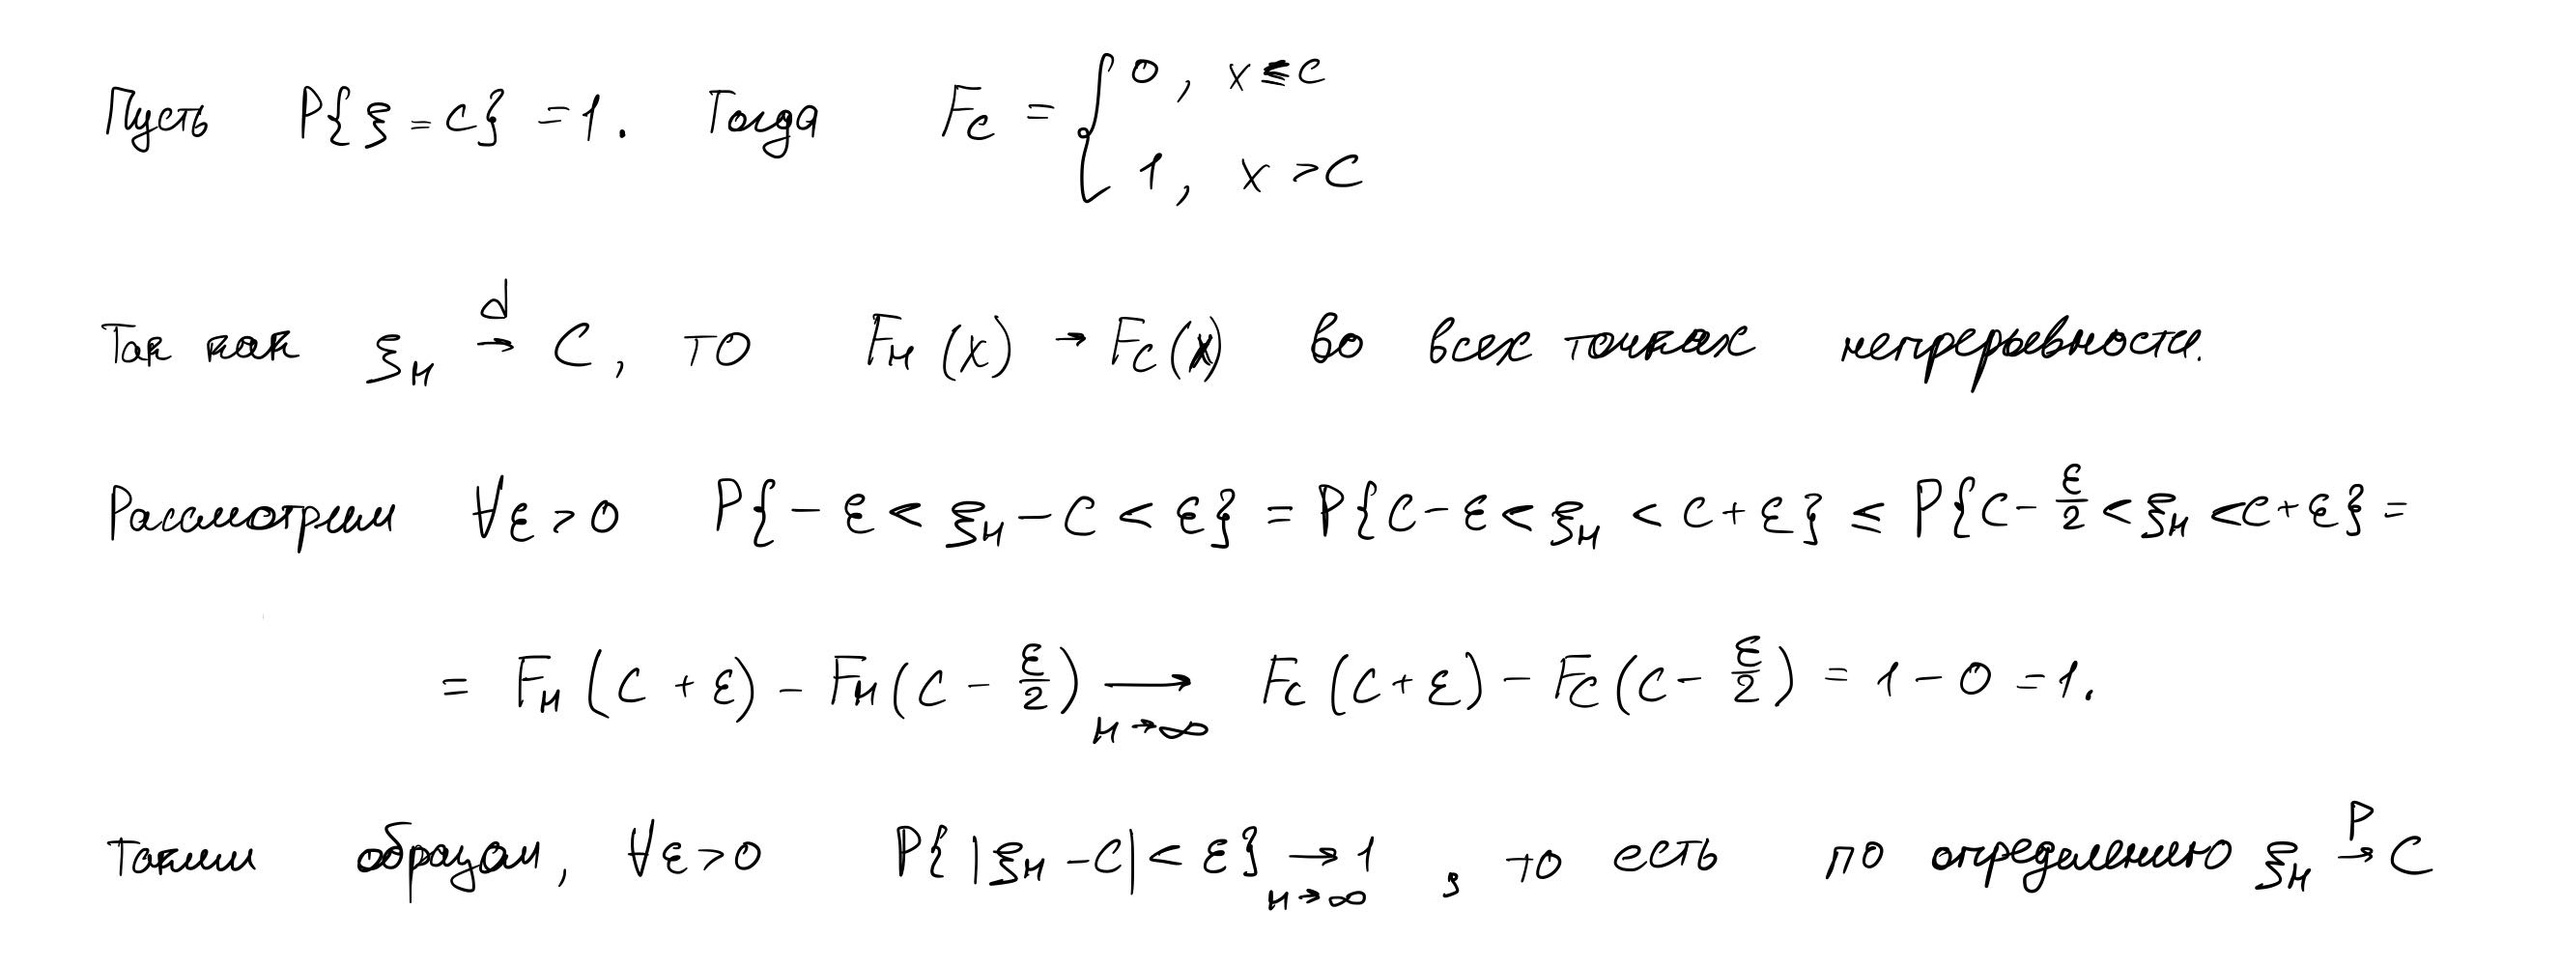 Пусть P{ξ = c} = 1. Тогда F_c = { 0, x ≤ c
1, x > c
Так как ξ_н →^d C, то F_н(x) → F_c(x) во всех точках непрерывности.
Рассмотрим ∀ε > 0 P{- ε < ξ_н - C < ε} = P{C - ε < ξ_н < C + ε} ≤ P{C - ε/2 < ξ_н < C + ε} =
= F_н(C + ε) - F_н(C - ε/2) →_{н→∞} F_c(C + ε) - F_c(C - ε/2) = 1 - 0 = 1.
Таким образом, ∀ε > 0 P{|ξ_н - C| < ε} →_{н→∞} 1, то есть по определению ξ_н →^P C